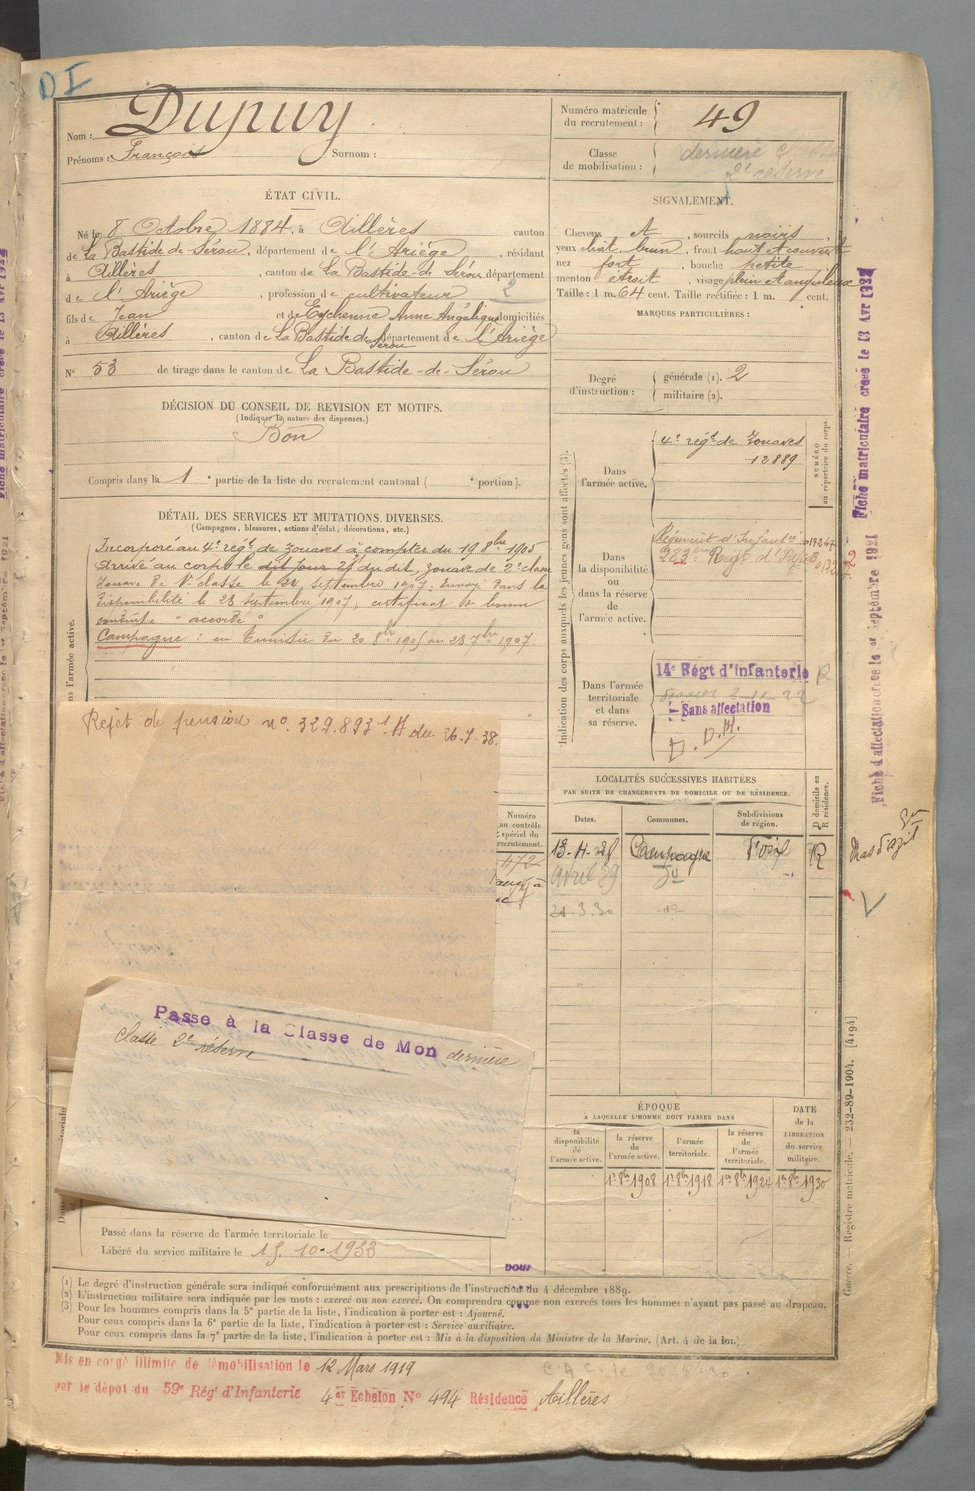 D I
Nom : Dupuy
Prénoms : François Surnom :
Numéro matricule du recrutement : 49
Classe de mobilisation : dernière classe
2e réserve
ÉTAT CIVIL.
Né le 8 Octobre 1884, à Aillères canton
de La Bastide de Sérou, département de l'Ariège, résidant
à Aillères, canton de La Bastide-de Sérou département
de l'Ariège, profession de cultivateur 2
fils de Jean et de Eychenne Anne Angélique domiciliés
à Aillères, canton de La Bastide de Sérou département de l'Ariège
N° 53 de tirage dans le canton de La Bastide-de-Sérou
SIGNALEMENT.
Cheveux et, sourcils noirs,
yeux chât. brun, front haut et couvert
nez fort, bouche petite
menton étroit, visage plein et anguleux
Taille : 1 m. 64 cent. Taille rectifiée : 1 m. cent.
MARQUES PARTICULIÈRES :
Degré d'instruction : générale (1). 2
militaire (2).
DÉCISION DU CONSEIL DE REVISION ET MOTIFS.
(Indiquer la nature des dispenses.)
Bon
Compris dans la 1e partie de la liste du recrutement cantonal ( e portion).
DÉTAIL DES SERVICES ET MUTATIONS DIVERSES.
(Campagnes, blessures, actions d'éclat, décorations, etc.)
Incorporé au 4e régt de zouaves à compter du 19 8bre 1905
Arrivé au corps le dit jour 21 du dit, zouave de 2e classe
Zouave de 1e classe le 21 septembre 1907. Envoyé dans la
disponibilité le 28 septembre 1907, certificat de bonne
conduite "accordé"
Campagne : en Tunisie du 20 8bre 1905 au 28 7bre 1907.
ns l'armée active.
Rejet de pension n° 329.893-1 A du 26-7-38.
Indication des corps auxquels les jeunes gens sont affectés (3).
NUMÉRO au répertoire du corps.
Dans l'armée active.
4e régt de Zouaves
12889
Dans la disponibilité ou dans la réserve de l'armée active.
Régiment d'Infanterie
Dans l'armée territoriale et dans sa réserve.
14e Régt d'Infanterie R
Sans affectation
LOCALITÉS SUCCESSIVES HABITÉES
PAR SUITE DE CHANGEMENTS DE DOMICILE OU DE RÉSIDENCE.
D domicile ou R résidence.
Dates. Communes. Subdivisions de région.
Campagne Foix R
avril 29 do
21-3-30 do
Mas d'Azil
Numéro au contrôle spécial du recrutement.
472
Passe à la Classe de Mon dernière
classe 2e réserve
ÉPOQUE
À LAQUELLE L'HOMME DOIT PASSER DANS
DATE de la LIBÉRATION du service militaire.
la disponibilité de l'armée active.
la réserve de l'armée active.
l'armée territoriale.
la réserve de l'armée territoriale.
1er 8bre 1908 1er 8bre 1918 1er 8bre 1924 1er 8bre 1930
Passé dans la réserve de l'armée territoriale le
Libéré du service militaire le 15 10-1933
pour
(1) Le degré d'instruction générale sera indiqué conformément aux prescriptions de l'instruction du 4 décembre 1889.
(2) L'instruction militaire sera indiquée par les mots : exercé ou non exercé. On comprendra comme non exercés tous les hommes n'ayant pas passé au drapeau.
(3) Pour les hommes compris dans la 5e partie de la liste, l'indication à porter est : Ajourné.
Pour ceux compris dans la 6e partie de la liste, l'indication à porter est : Service auxiliaire.
Pour ceux compris dans la 7e partie de la liste, l'indication à porter est : Mis à la disposition du Ministre de la Marine. (Art. 4 de la loi.)
Mis en congé illimité de démobilisation le 12 Mars 1919
par le dépôt du 59e Rég d'Infanterie 4er Echelon N° 494 Résidence Aillères
Fiche matriculaire créée le 13 Avr 1921
Fiche d'affectation créée le 1er Septembre 1921
Guerre. — Registre matricule. — 232-89-1904. [4194]